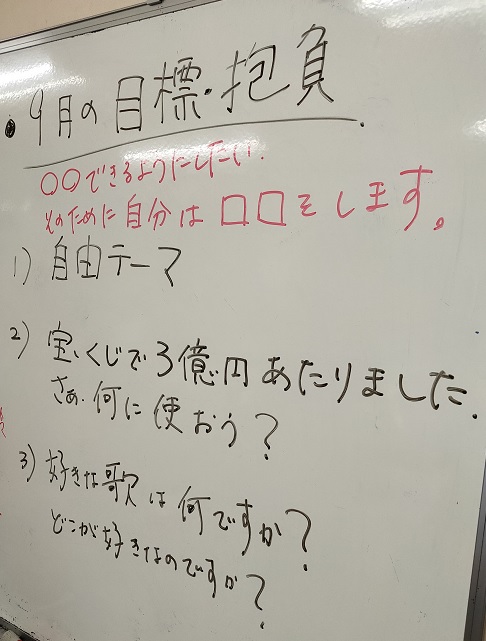 ・9月の目標・抱負
〇〇できるようにしたい.
そのために自分は□□をします。
1) 自由テーマ
2) 宝くじで3億円あたりました.
さぁ.何に使おう?
3) 好きな歌は何ですか?
どこが好きなのですか?